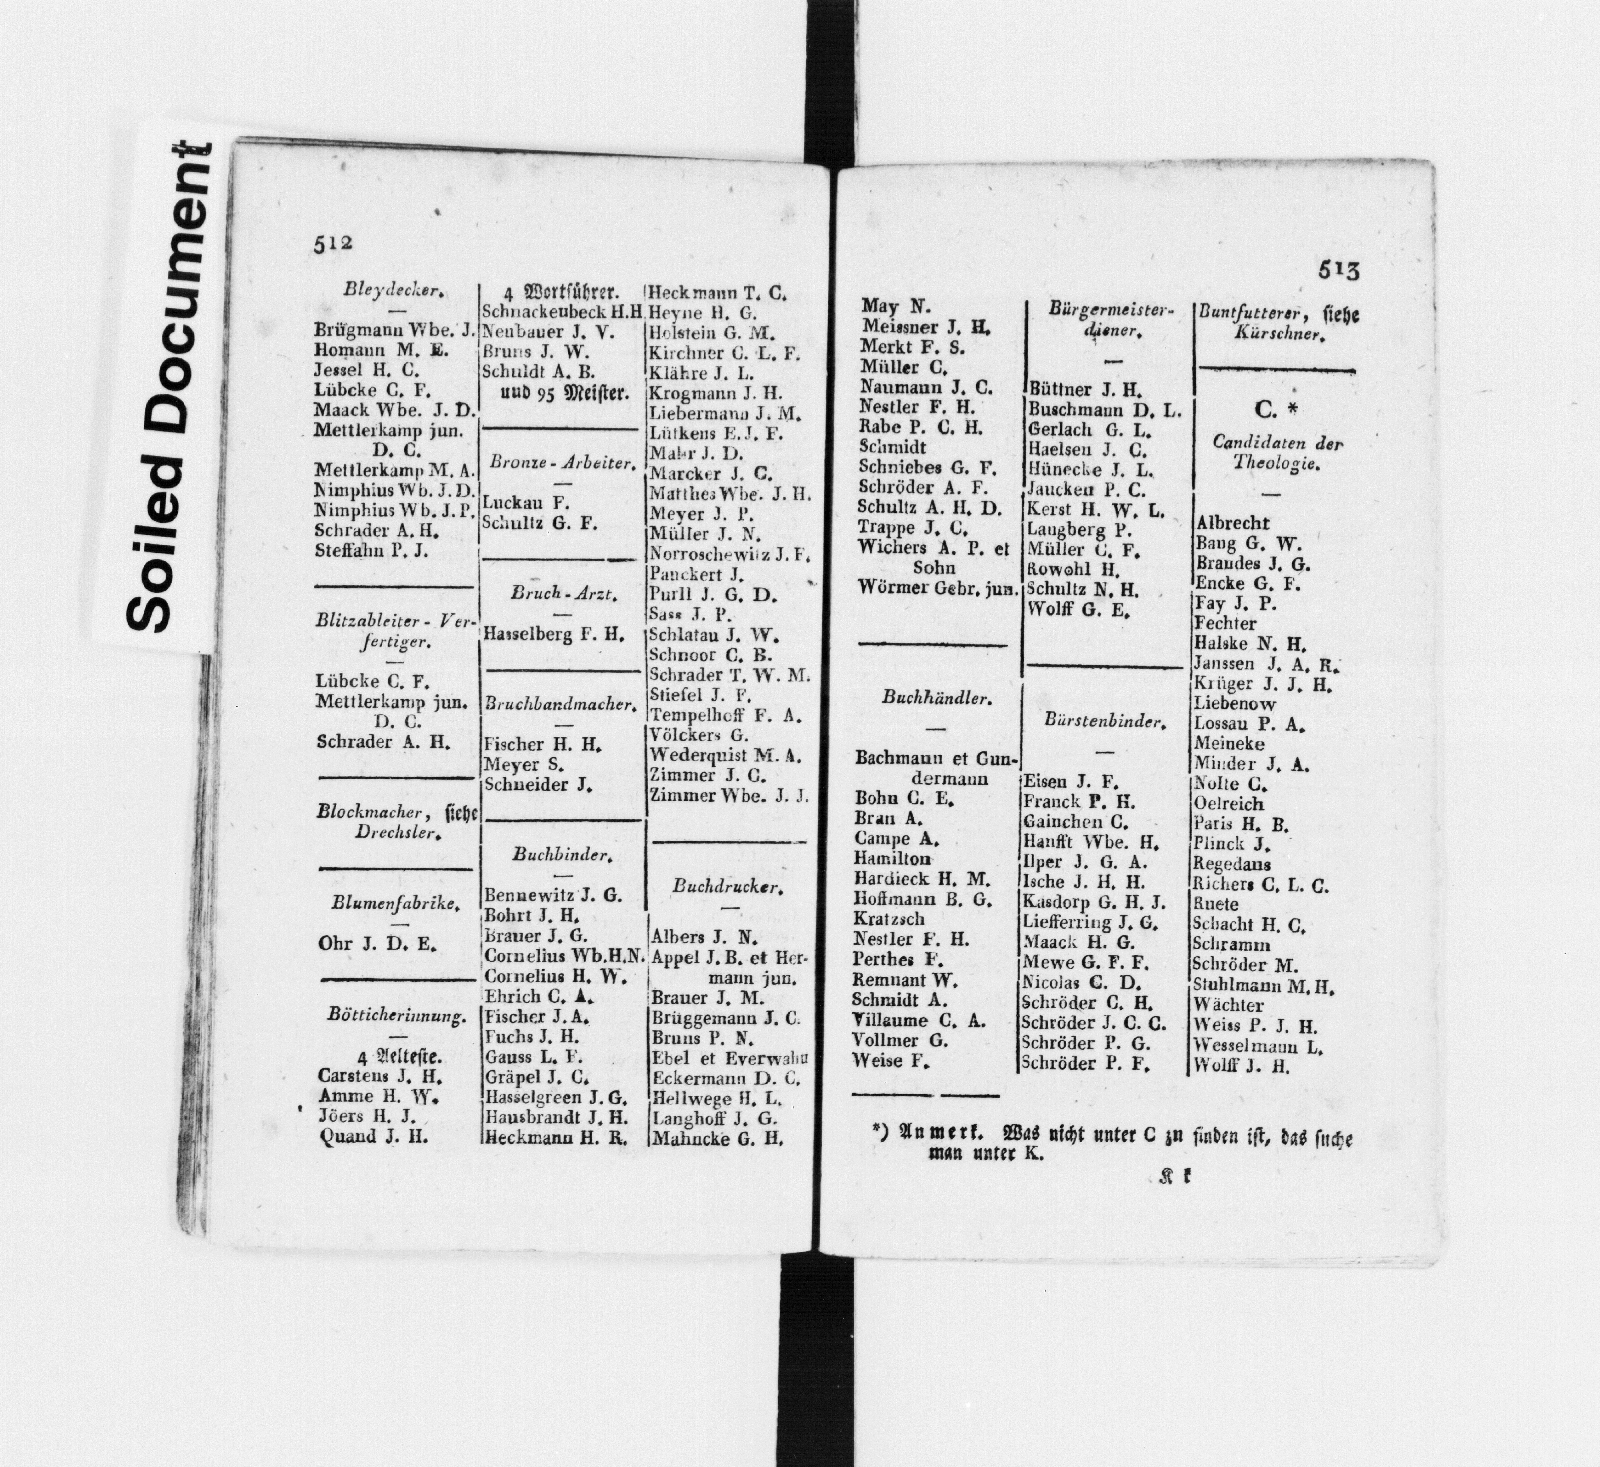 Soiled Document
512
Bleydecker.
Brügmann Wbe. J.
Homann M. E.
Jessel H. C.
Lübcke C. F.
Maack Wbe. J. D.
Mettlerkamp jun.
D. C.
Mettlerkamp M. A.
Nimphius Wb. J. D.
Nimphius Wb. J. P.
Schrader A. H.
Steffahn P. J.
Blitzableiter - Ver-
fertiger.
Lübcke C. F.
Mettlerkamp jun.
D. C.
Schrader A. H.
Blockmacher, siehe
Drechsler.
Blumenfabrike.
Ohr J. D. E.
Bötticherinnung.
4 Aelteste.
Carstens J. H.
Amme H. W.
Jöers H. J.
Quand J. H.
4 Wortführer.
Schnackenbeck H. H.
Neubauer J. V.
Bruns J. W.
Schuldt A. B.
und 95 Meister.
Bronze - Arbeiter.
Luckau F.
Schultz G. F.
Bruch - Arzt.
Hasselberg F. H.
Bruchbandmacher.
Fischer H. H.
Meyer S.
Schneider J.
Buchbinder.
Bennewitz J. G.
Bohrt J. H.
Brauer J. G.
Cornelius Wb. H. N.
Cornelius H. W.
Ehrich C. A.
Fischer J. A.
Fuchs J. H.
Gauss L. F.
Gräpel J. C.
Hasselgreen J. G.
Hausbrandt J. H.
Heckmann H. R.
Heckmann T. C.
Heyne H. G.
Holstein G. M.
Kirchner C. L. F.
Klähre J. L.
Krogmann J. H.
Liebermann J. M.
Lütkens E. J. F.
Mahr J. D.
Marcker J. C.
Matthes Wbe. J. H.
Meyer J. P.
Müller J. N.
Norroschewitz J. F.
Panckert J.
Purll J. G. D.
Sass J. P.
Schlatau J. W.
Schnoor C. B.
Schrader T. W. M.
Stiefel J. F.
Tempelhoff F. A.
Völckers G.
Wederquist M. A.
Zimmer J. C.
Zimmer Wbe. J. J.
Buchdrucker.
Albers J. N.
Appel J. B. et Her-
mann jun.
Brauer J. M.
Brüggemann J. C.
Bruns P. N.
Ebel et Everwahn
Eckermann D. C.
Hellwege H. L.
Langhoff J. G.
Mahncke G. H.
513
May N.
Meissner J. H.
Merkt F. S.
Müller C.
Naumann J. C.
Nestler F. H.
Rabe P. C. H.
Schmidt
Schniebes G. F.
Schröder A. F.
Schultz A. H. D.
Trappe J. C.
Wichers A. P. et
Sohn
Wörmer Gebr. jun.
Buchhändler.
Bachmann et Gun-
dermann
Bohn C. E.
Bran A.
Campe A.
Hamilton
Hardieck H. M.
Hoffmann B. G.
Kratzsch
Nestler F. H.
Perthes F.
Remnant W.
Schmidt A.
Villaume C. A.
Vollmer G.
Weise F.
Bürgermeister-
diener.
Büttner J. H.
Buschmann D. L.
Gerlach G. L.
Haelsen J. C.
Hünecke J. L.
Jaucken P. C.
Kerst H. W. L.
Langberg P.
Müller C. F.
Rowohl H.
Schultz N. H.
Wolff G. E.
Bürstenbinder.
Eisen J. F.
Franck P. H.
Gainchen C.
Hanfft Wbe. H.
Ilper J. G. A.
Ische J. H. H.
Kasdorp G. H. J.
Liefferring J. G.
Maack H. G.
Mewe G. F. F.
Nicolas C. D.
Schröder C. H.
Schröder J. C. C.
Schröder P. G.
Schröder P. F.
Buntfutterer, siehe
Kürschner.
C. *
Candidaten der
Theologie.
Albrecht
Bang G. W.
Brandes J. G.
Encke G. F.
Fay J. P.
Fechter
Halske N. H.
Janssen J. A. R.
Krüger J. J. H.
Liebenow
Lossau P. A.
Meineke
Minder J. A.
Nolte C.
Oelreich
Paris H. B.
Plinck J.
Regedans
Richers C. L. C.
Ruete
Schacht H. C.
Schramm
Schröder M.
Stuhlmann M. H.
Wächter
Weiss P. J. H.
Wesselmann L.
Wolff J. H.
*) Anmerk. Was nicht unter C zu finden ist, das suche
man unter K.
K k